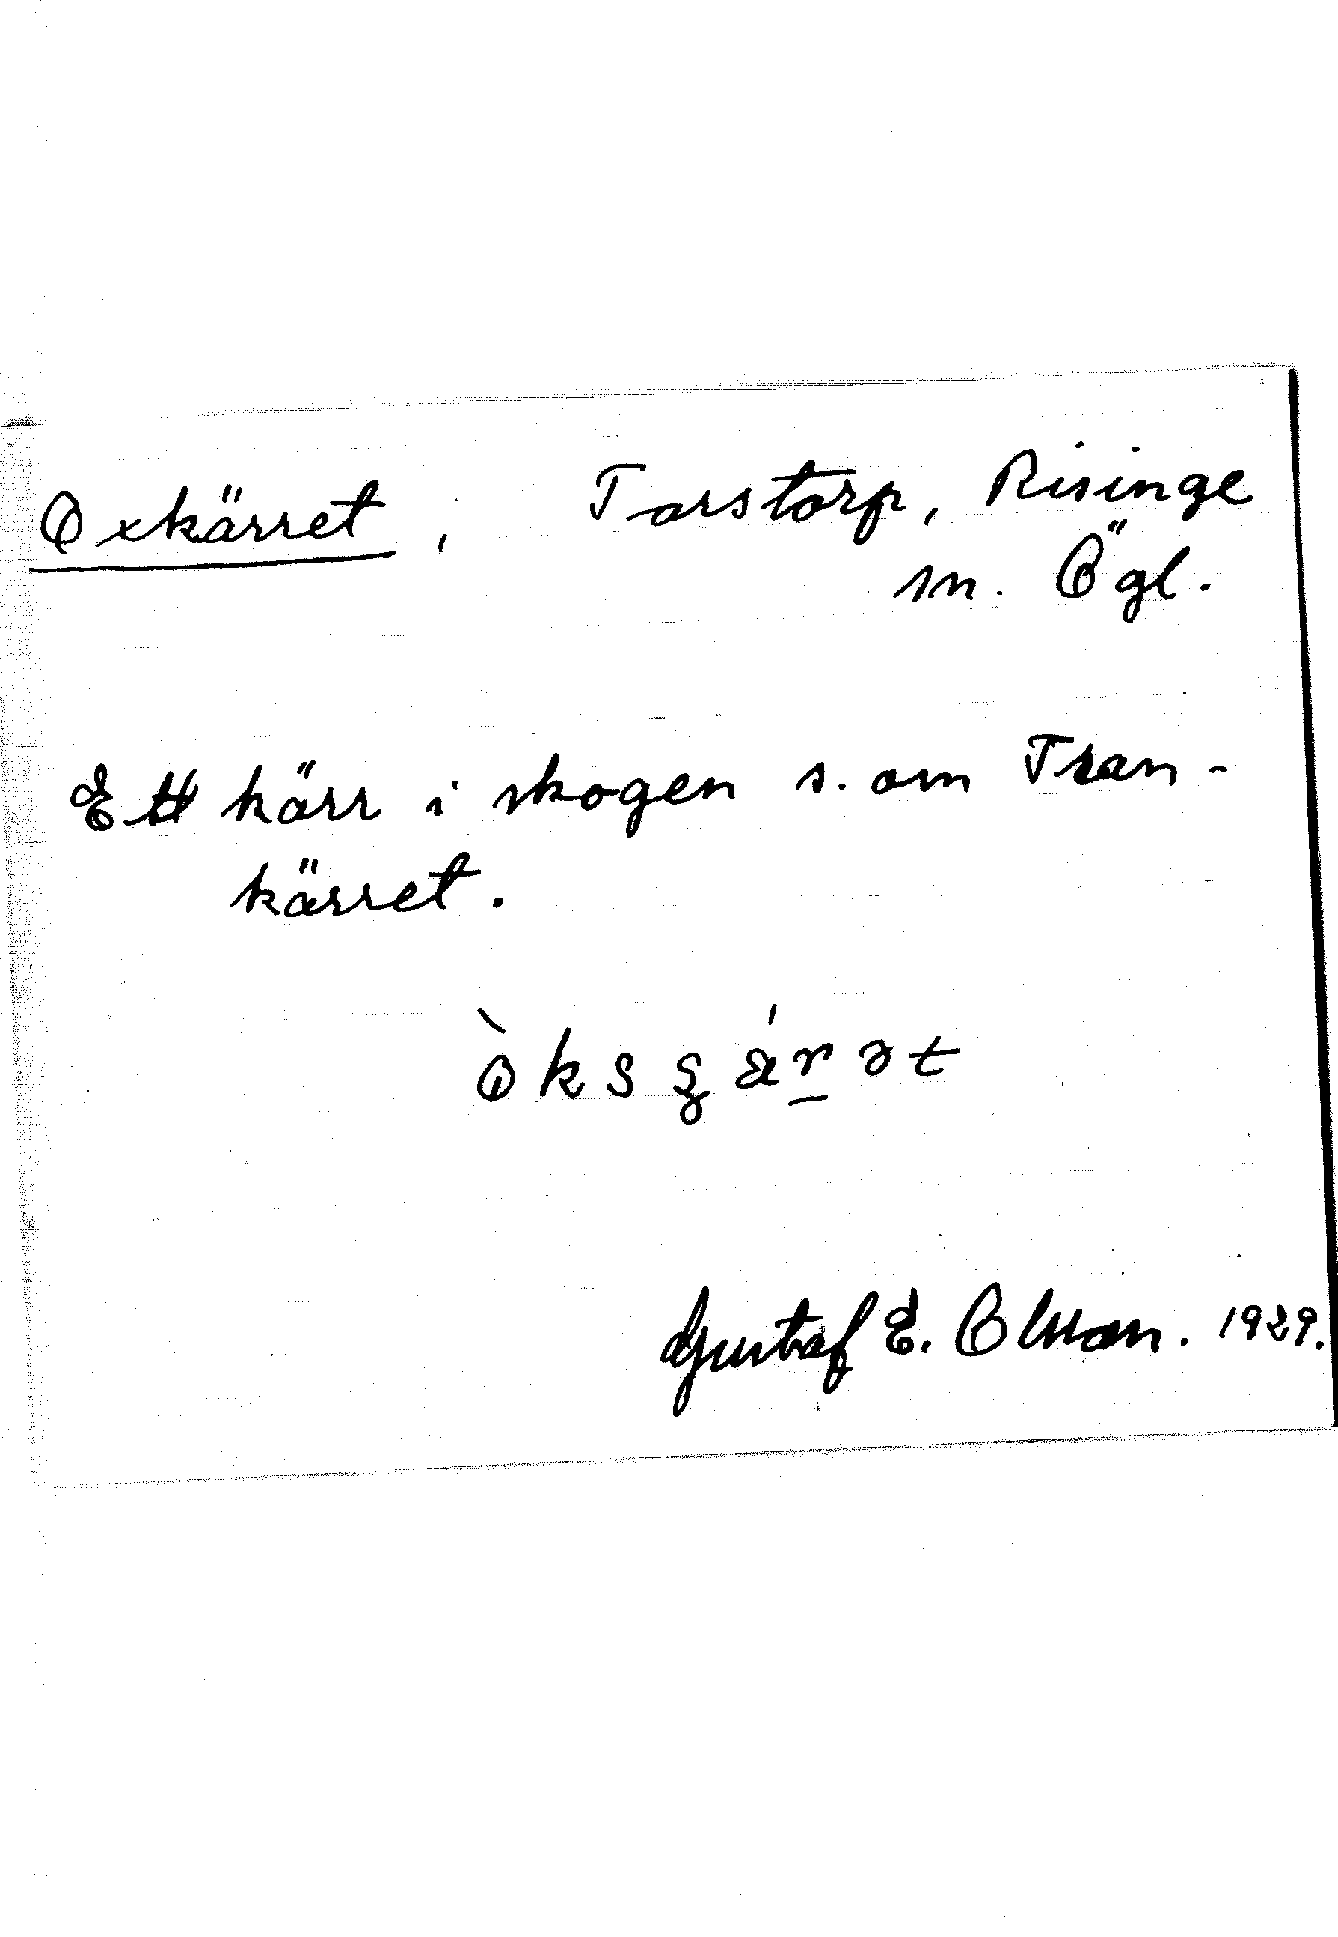 Oxkärret, Torstorp, Risinge
sn. Ögl.
Ett kärr i skogen s. om Tran-
kärret.
Gustaf E. Olsson. 1929.